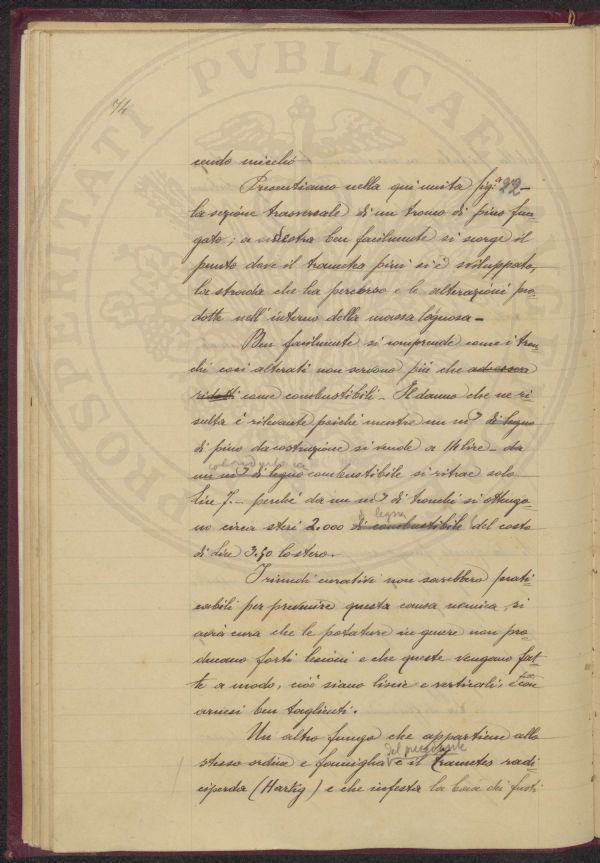 74
PROSPERITATI PVBLICAE
cendo micelio
Presentiamo nella qui unita fig.ª 22 –
la sezione trasversale di un tronco di pino fun-
gato; a destra ben facilmente si scorge il
punto dove il trametes pini si è sviluppato,
la strada che ha percorso e le alterazioni pro-
dotte nell'interno della massa legnosa –
Ben facilmente si comprende come i tron-
chi così alterati non servono più che ad essere
ridotti come combustibili – Il danno che ne ri-
sulta è rilevante poichè mentre un m³ di legno
di pino da costruzione si vende a lire – da
un m³ di legno combustibile si ritrae solo
Lire 7. – perchè da un m³ di tronchi si ottengo-
no circa steri 2.000 di combustibile del costo
di legna
di Lire 3.50 lo stero.
I rimedi curativi non sarebbero prati-
cabili per prevenire questa causa nemica, si
avrà cura che le potature in genere non pro-
ducano forti lesioni e che queste vengano fat-
te a modo, cioè siano liscie e verticali, e con
arnesi ben taglienti.
Un altro fungo che appartiene allo
stesso ordine e famiglia del precedente è il trametes radi-
ciperda (Hartig) e che infesta la base dei fusti